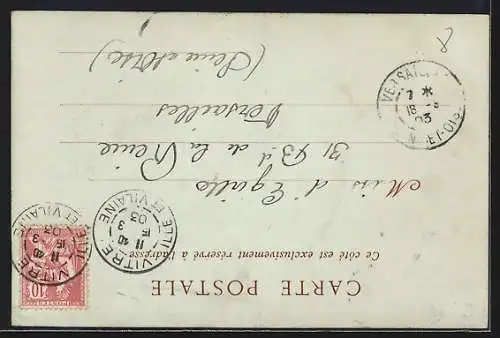 CARTE POSTALE
Ce côté est exclusivement réservé à l'adresse
Miss d'Egalle
31 Bd de la Reine
Versailles
(Seine et Oise)
VITRE
11 45
3 F
03
ILLE ET VILAINE
VITRE
11 45
3 F
03
ILLE ET VILAINE
10
POSTES
VERSAILLES
7 *
18
03
8